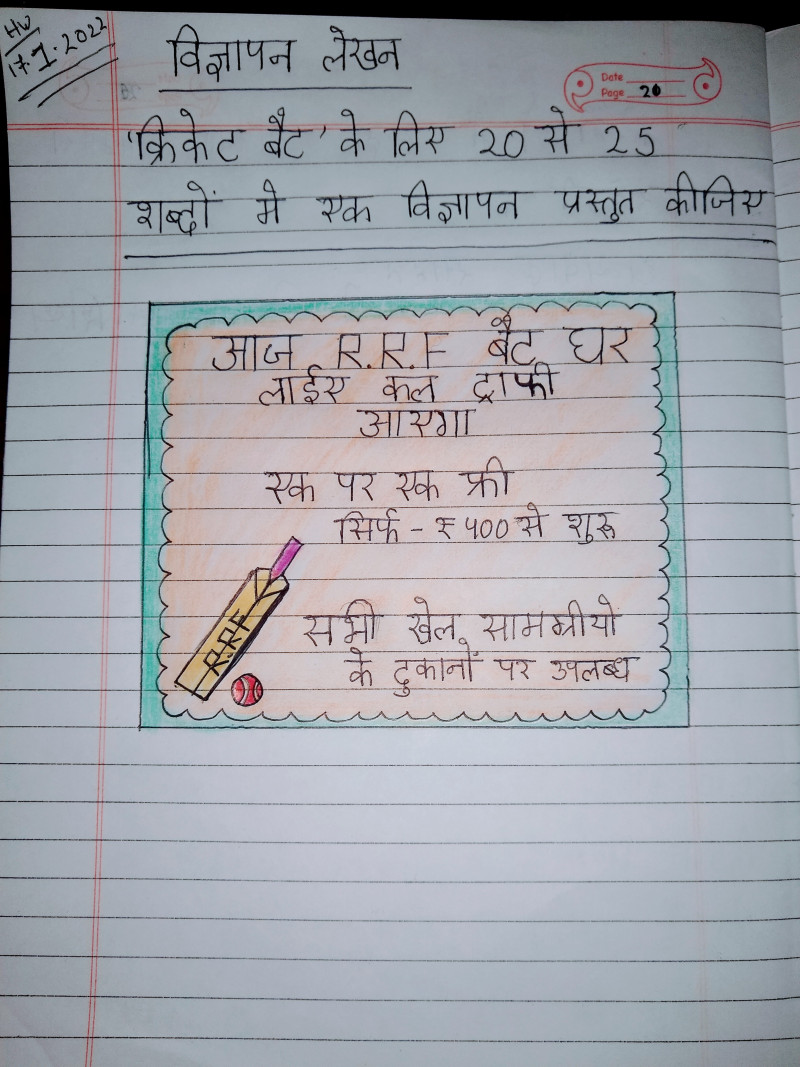 HW
17.1.2022
विज्ञापन लेखन
Date
Page 20
'क्रिकेट बैट' के लिए 20 से 25
शब्दों मे एक विज्ञापन प्रस्तुत कीजिए
आज R.R.F बैट घर
लाईए कल ट्राफी
आएगा
एक पर एक फ्री
सिर्फ - ₹ 400 से शुरू
सभी खेल सामग्रीयो
के दुकानों पर उपलब्ध
R.R.F